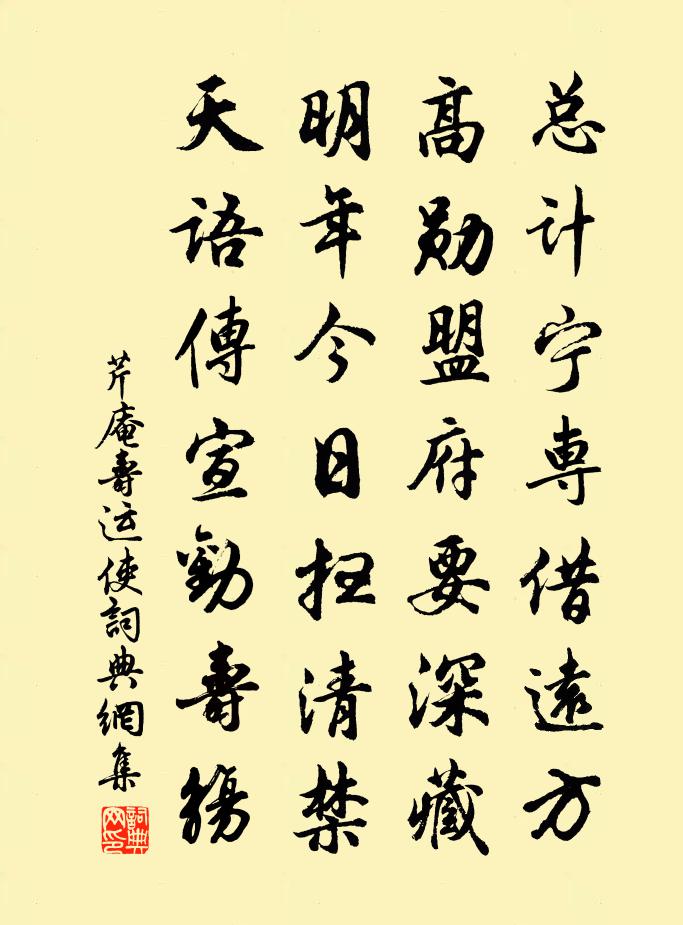 总计宁専借遠方
高勋盟府要深藏
明年今日扫清禁
天语傳宣勸壽觞
芹庵壽运使詞典網集
詞典网印